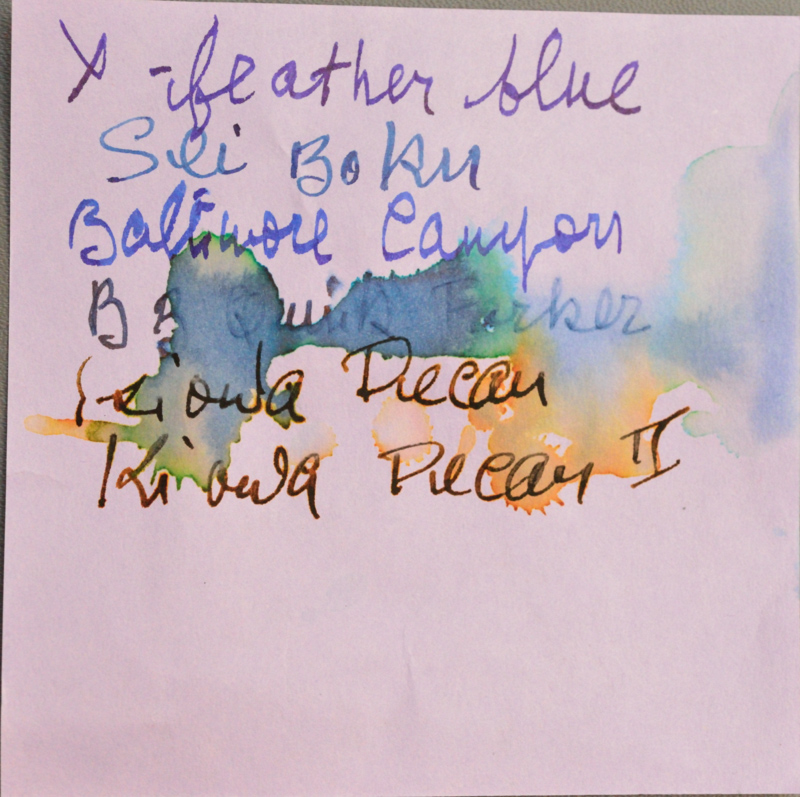 X-feather blue
Sei Boku
Baltimore Canyon
BB Quink Parker
Kiowa Pecan
Kiowa Pecan II